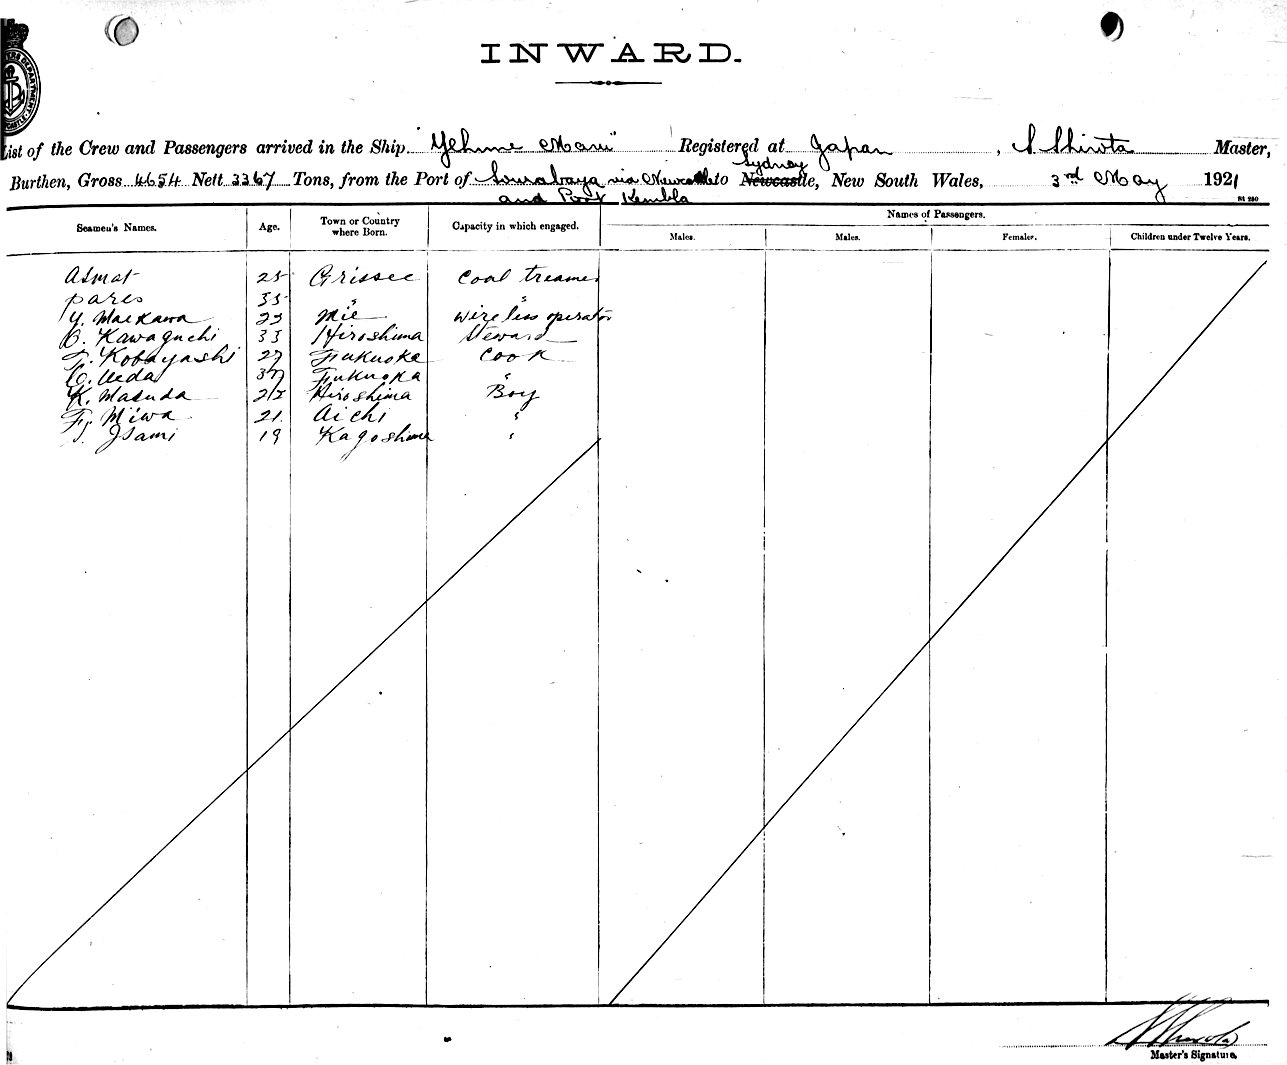 INWARD.
List of the Crew and Passengers arrived in the Ship "Yehime Maru" Registered at Japan, S. Shirota Master,
Burthen, Gross 4654 Nett 3367 Tons, from the Port of Sourabaya via Newcastle to Newcastle, Sydney New South Wales, 3rd May 1921
and Port Kembla
Names of Passengers.
Seamen's Names. Age. Town or Country where Born. Capacity in which engaged. Males. Males. Females. Children under Twelve Years.
Asmat 25 Grissee Coal treamer
Pares 35 " "
Y. Maekawa 23 Mie Wireless operator
Kawaguchi 33 Hiroshima Steward
T. Kobayashi 27 Fukuoka Cook
Ueda 37 Fukuoka "
K. Masuda Hiroshima Boy
F. Miwa 21. Aichi "
Isami 19 Kagoshima "
Master's Signature.